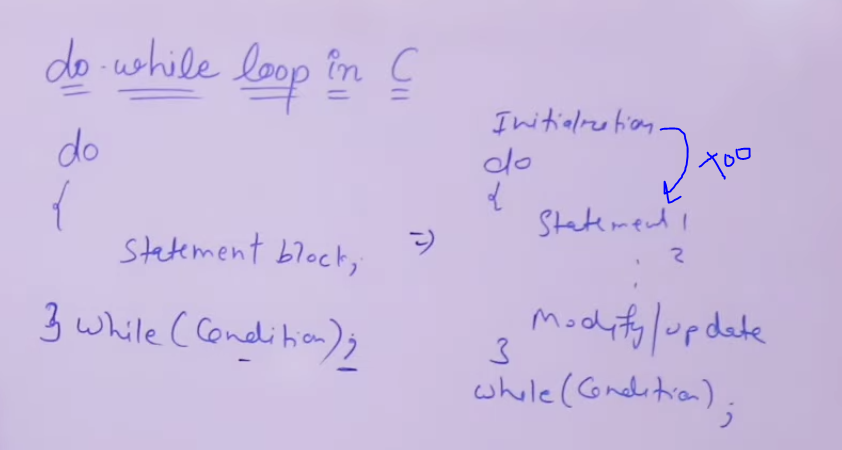 do-while loop in C
do
{
Statement block;
} while(Condition);
=>
Initialization
too
do
{
Statement 1
2
.
.
Modify/update
}
while(Condition);